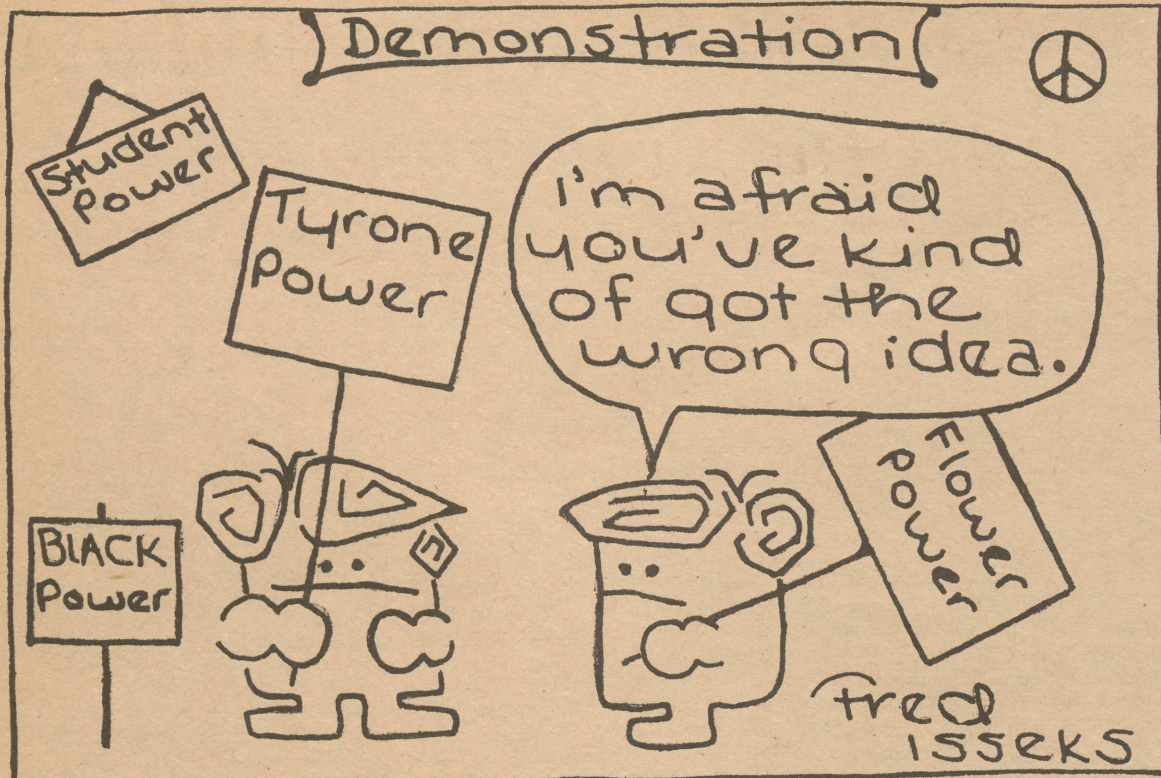 Demonstration
Student
Power
Tyrone
Power
I'm afraid
you've kind
of got the
wrong idea.
BLACK
Power
Flower
Power
Fred
isseks